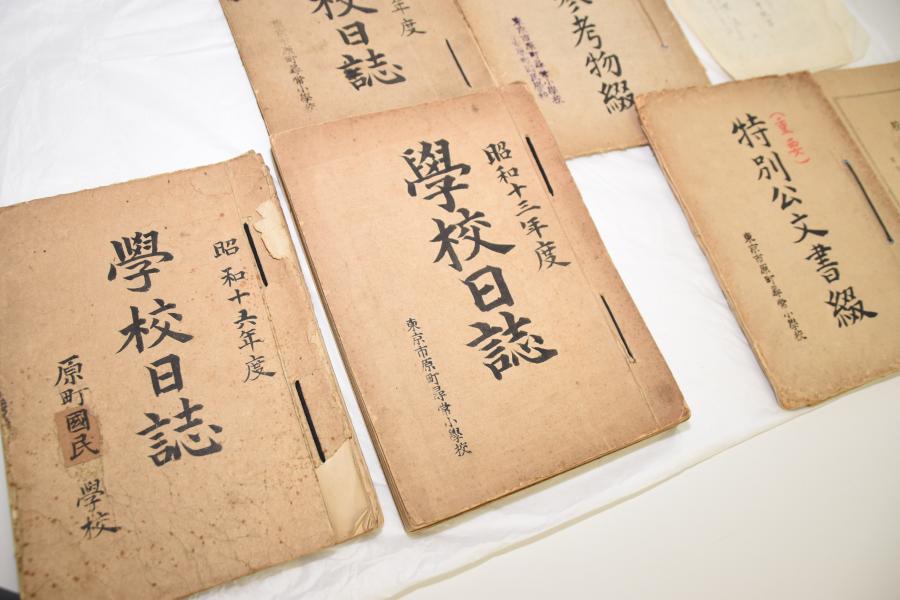 昭和十六年度
學校日誌
原町國民學校
昭和十三年度
學校日誌
東京市原町尋常小學校
年度
校日誌
東京市原町尋常小學校
考物綴
東京市原町尋常小學校
(重要)
特別公文書綴
東京市原町尋常小學校